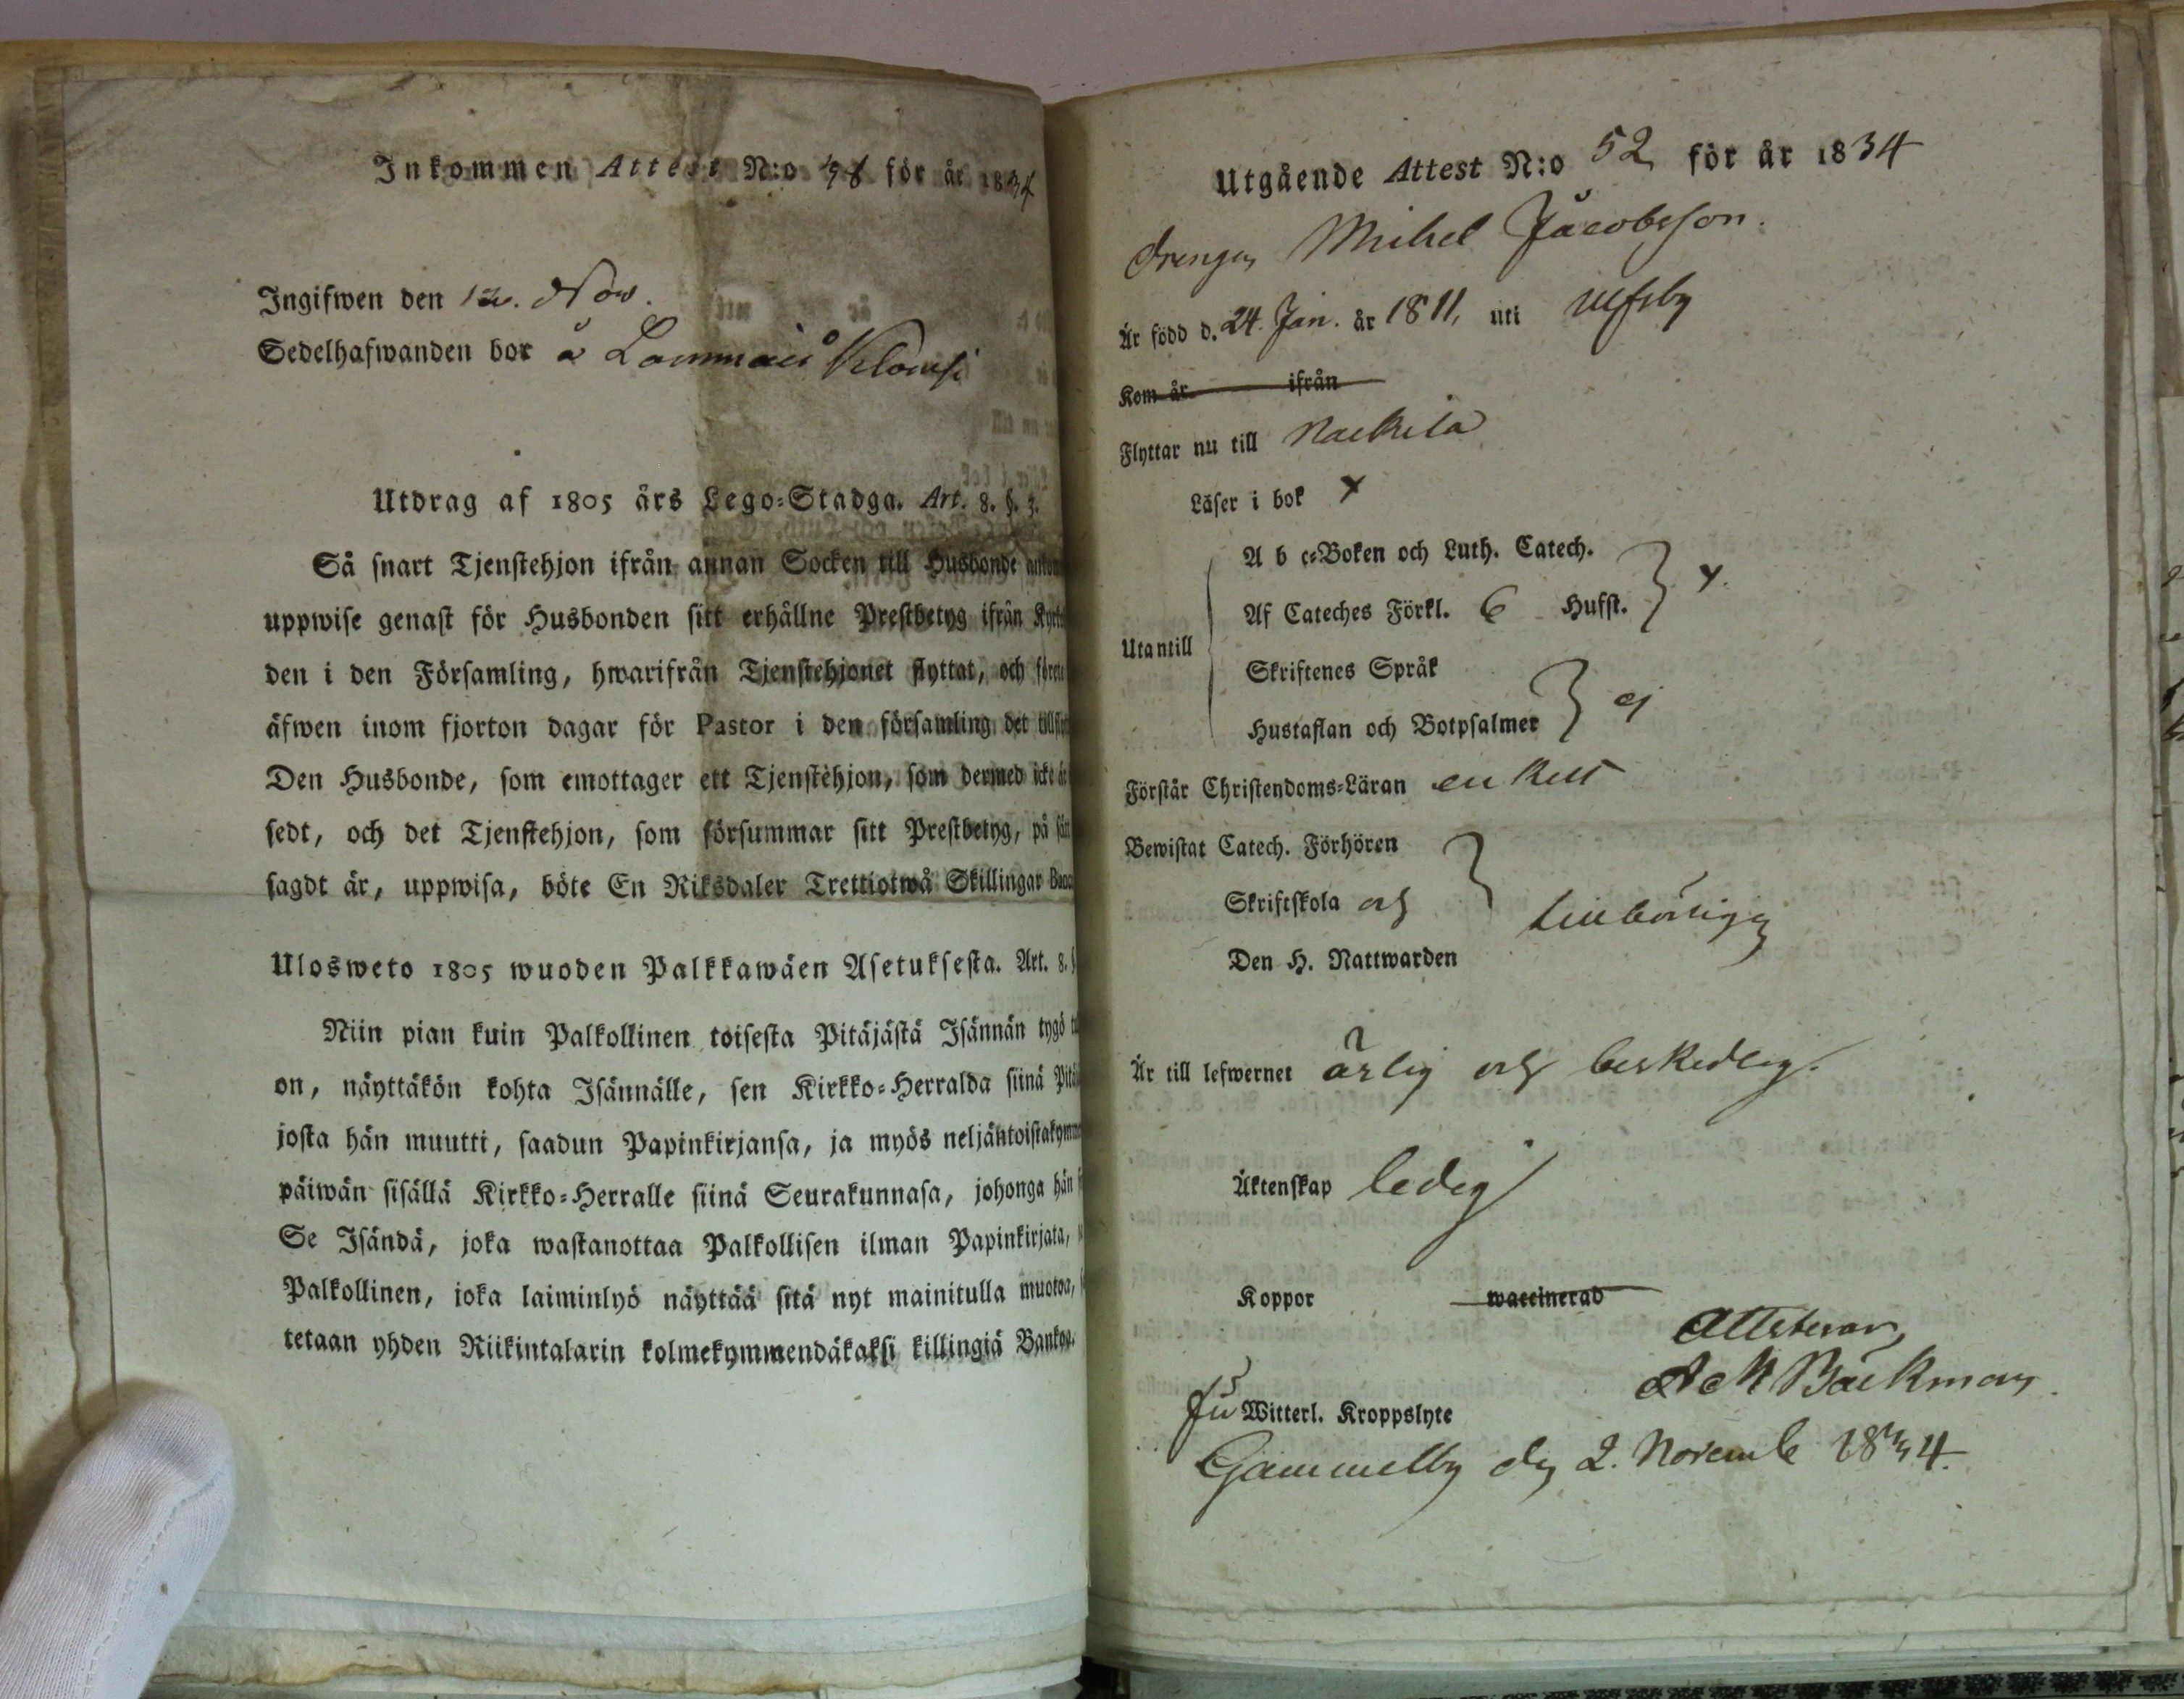 Inkommen Attest N:o 48 för år 1834
Ingifwen den 12. Nov.
Sedelhafwanden bor å Lammais
Utdrag af 1805 års Lego-Stadga. Art. 8. §. 3.
Så snart Tjenstehjon ifrån annan Socken till Husbonde
uppwise genast för Husbonden sitt erhållne Prestbetyg ifrån
den i den Församling, hwarifrån Tjenstehjonet flyttat, och
äfwen inom fjorton dagar för Pastor i den församling det
Den Husbonde, som emottager ett Tjenstehjon, som dermed icke
sedt, och det Tjenstehjon, som försummar sitt Prestbetyg, på
sagdt är, uppwisa, böte En Riksdaler Trettiotwå Skillingar
Ulosweto 1805 wuoden Palkkawäen Asetuksesta. Art. 8.
Niin pian kuin Palkollinen toisesta Pitäjästä Isännän tygö
on, näyttäkön kohta Isännälle, sen Kirkko-Herralda siinä
josta hän muutti, saadun Papinkirjansa, ja myös
päiwän sisällä Kirkko-Herralle siinä Seurakunnasa, johonga hän
Se Isändä, joka wastanottaa Palkollisen ilman Papinkirjata,
Palkollinen, joka laiminlyö näyttää sitä nyt mainitulla muotoa,
tetaan yhden Riikintalarin kolmekymmendäkaksi killingiä
Utgående Attest N:o 52 för år 1834
Drengen Mihel Jacobsson.
Är född d. 24. Jan. år 1811, uti Ulfsby
Kom år ifrån
Flyttar nu till Nackila
Läser i bok x
A b c-Boken och Luth. Catech.
Af Cateches Förkl. 6 Husst. x.
Utantill
Skriftenes Språk
Hustaflan och Botpsalmer ej
Förstår Christendoms-Läran enkelt
Bewistat Catech. Förhören
Skriftskola och tillbörligen
Den H. Nattwarden
Är till lefwernet ärlig och beskedlig.
Äktenskap ledig
Koppor waccinerad
Attesterar
Bäckman
Witterl. Kroppslyte
Gammelby den 2. Novemb 1834.